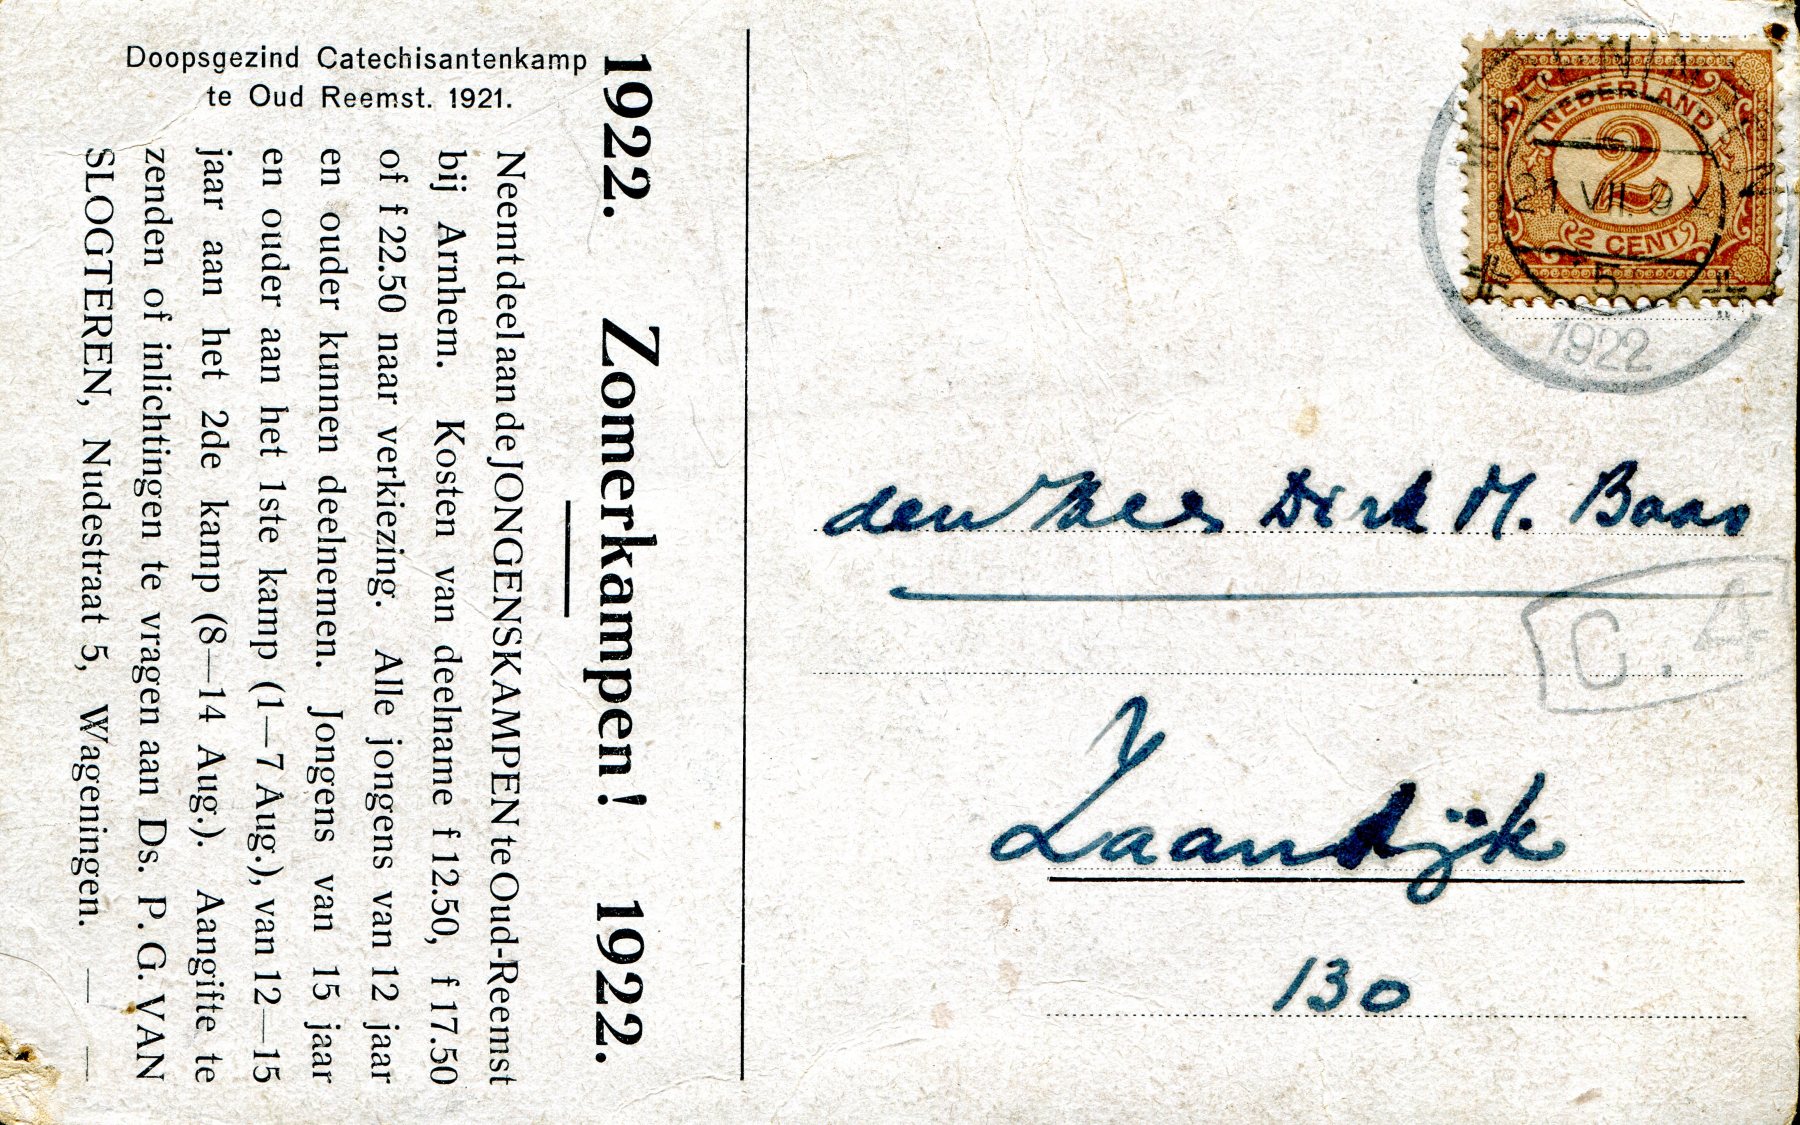 Doopsgezind Catechisantenkamp
te Oud Reemst. 1921.
1922. Zomerkampen! 1922.
Neemt deel aan de JONGENSKAMPEN te Oud-Reemst
bij Arnhem. Kosten van deelname f 12.50, f 17.50
of f 22.50 naar verkiezing. Alle jongens van 12 jaar
en ouder kunnen deelnemen. Jongens van 15 jaar
en ouder aan het 1ste kamp (1—7 Aug.), van 12—15
jaar aan het 2de kamp (8—14 Aug.). Aangifte te
zenden of inlichtingen te vragen aan Ds. P. G. VAN
SLOGTEREN, Nudestraat 5, Wageningen. — —
NEDERLAND
2
2 CENT
21.VII.9 V
5
1922
den Heer Dirk M. Baas
C. A
Zaandijk
130